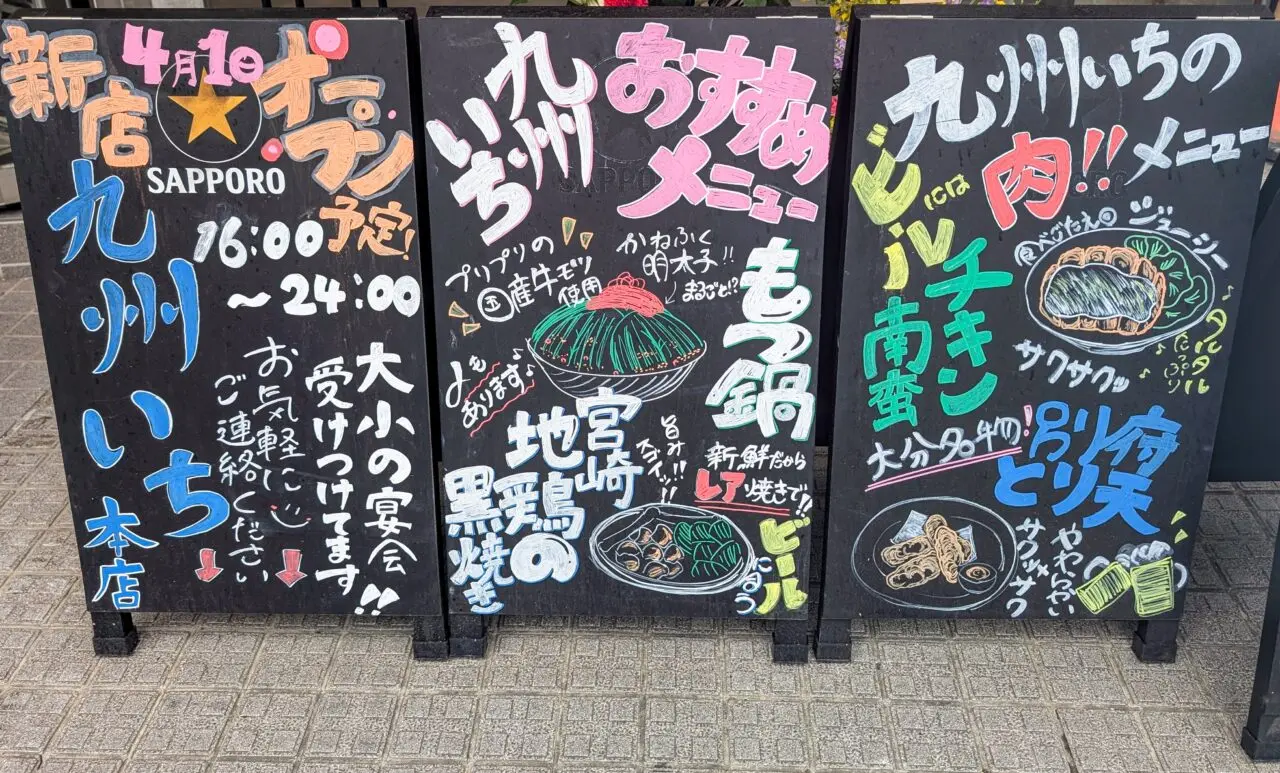 新店
4月1日
オープン
予定!
SAPPORO
九州いち
本店
16:00
～24:00
大小の宴会
受けつけてます!!
お気軽に
ご連絡ください
九州
いち
おすすめ
メニュー
プリプリの
国産牛モツ
使用
かねふく
明太子!!
まるごと!?
もつ鍋
あります♪
宮崎
地鶏の
黒焼き
旨み
スゴイッ!!
新鮮だから
レア焼きで!!
ビール
九州いちの
肉!!
メニュー
ビール
には
チキン
南蛮
食べごたえ◎
ジューシー
サクサクッ
タルタル
たっぷり
大分名物!
別府
とり天
やわらかい
サクッサク